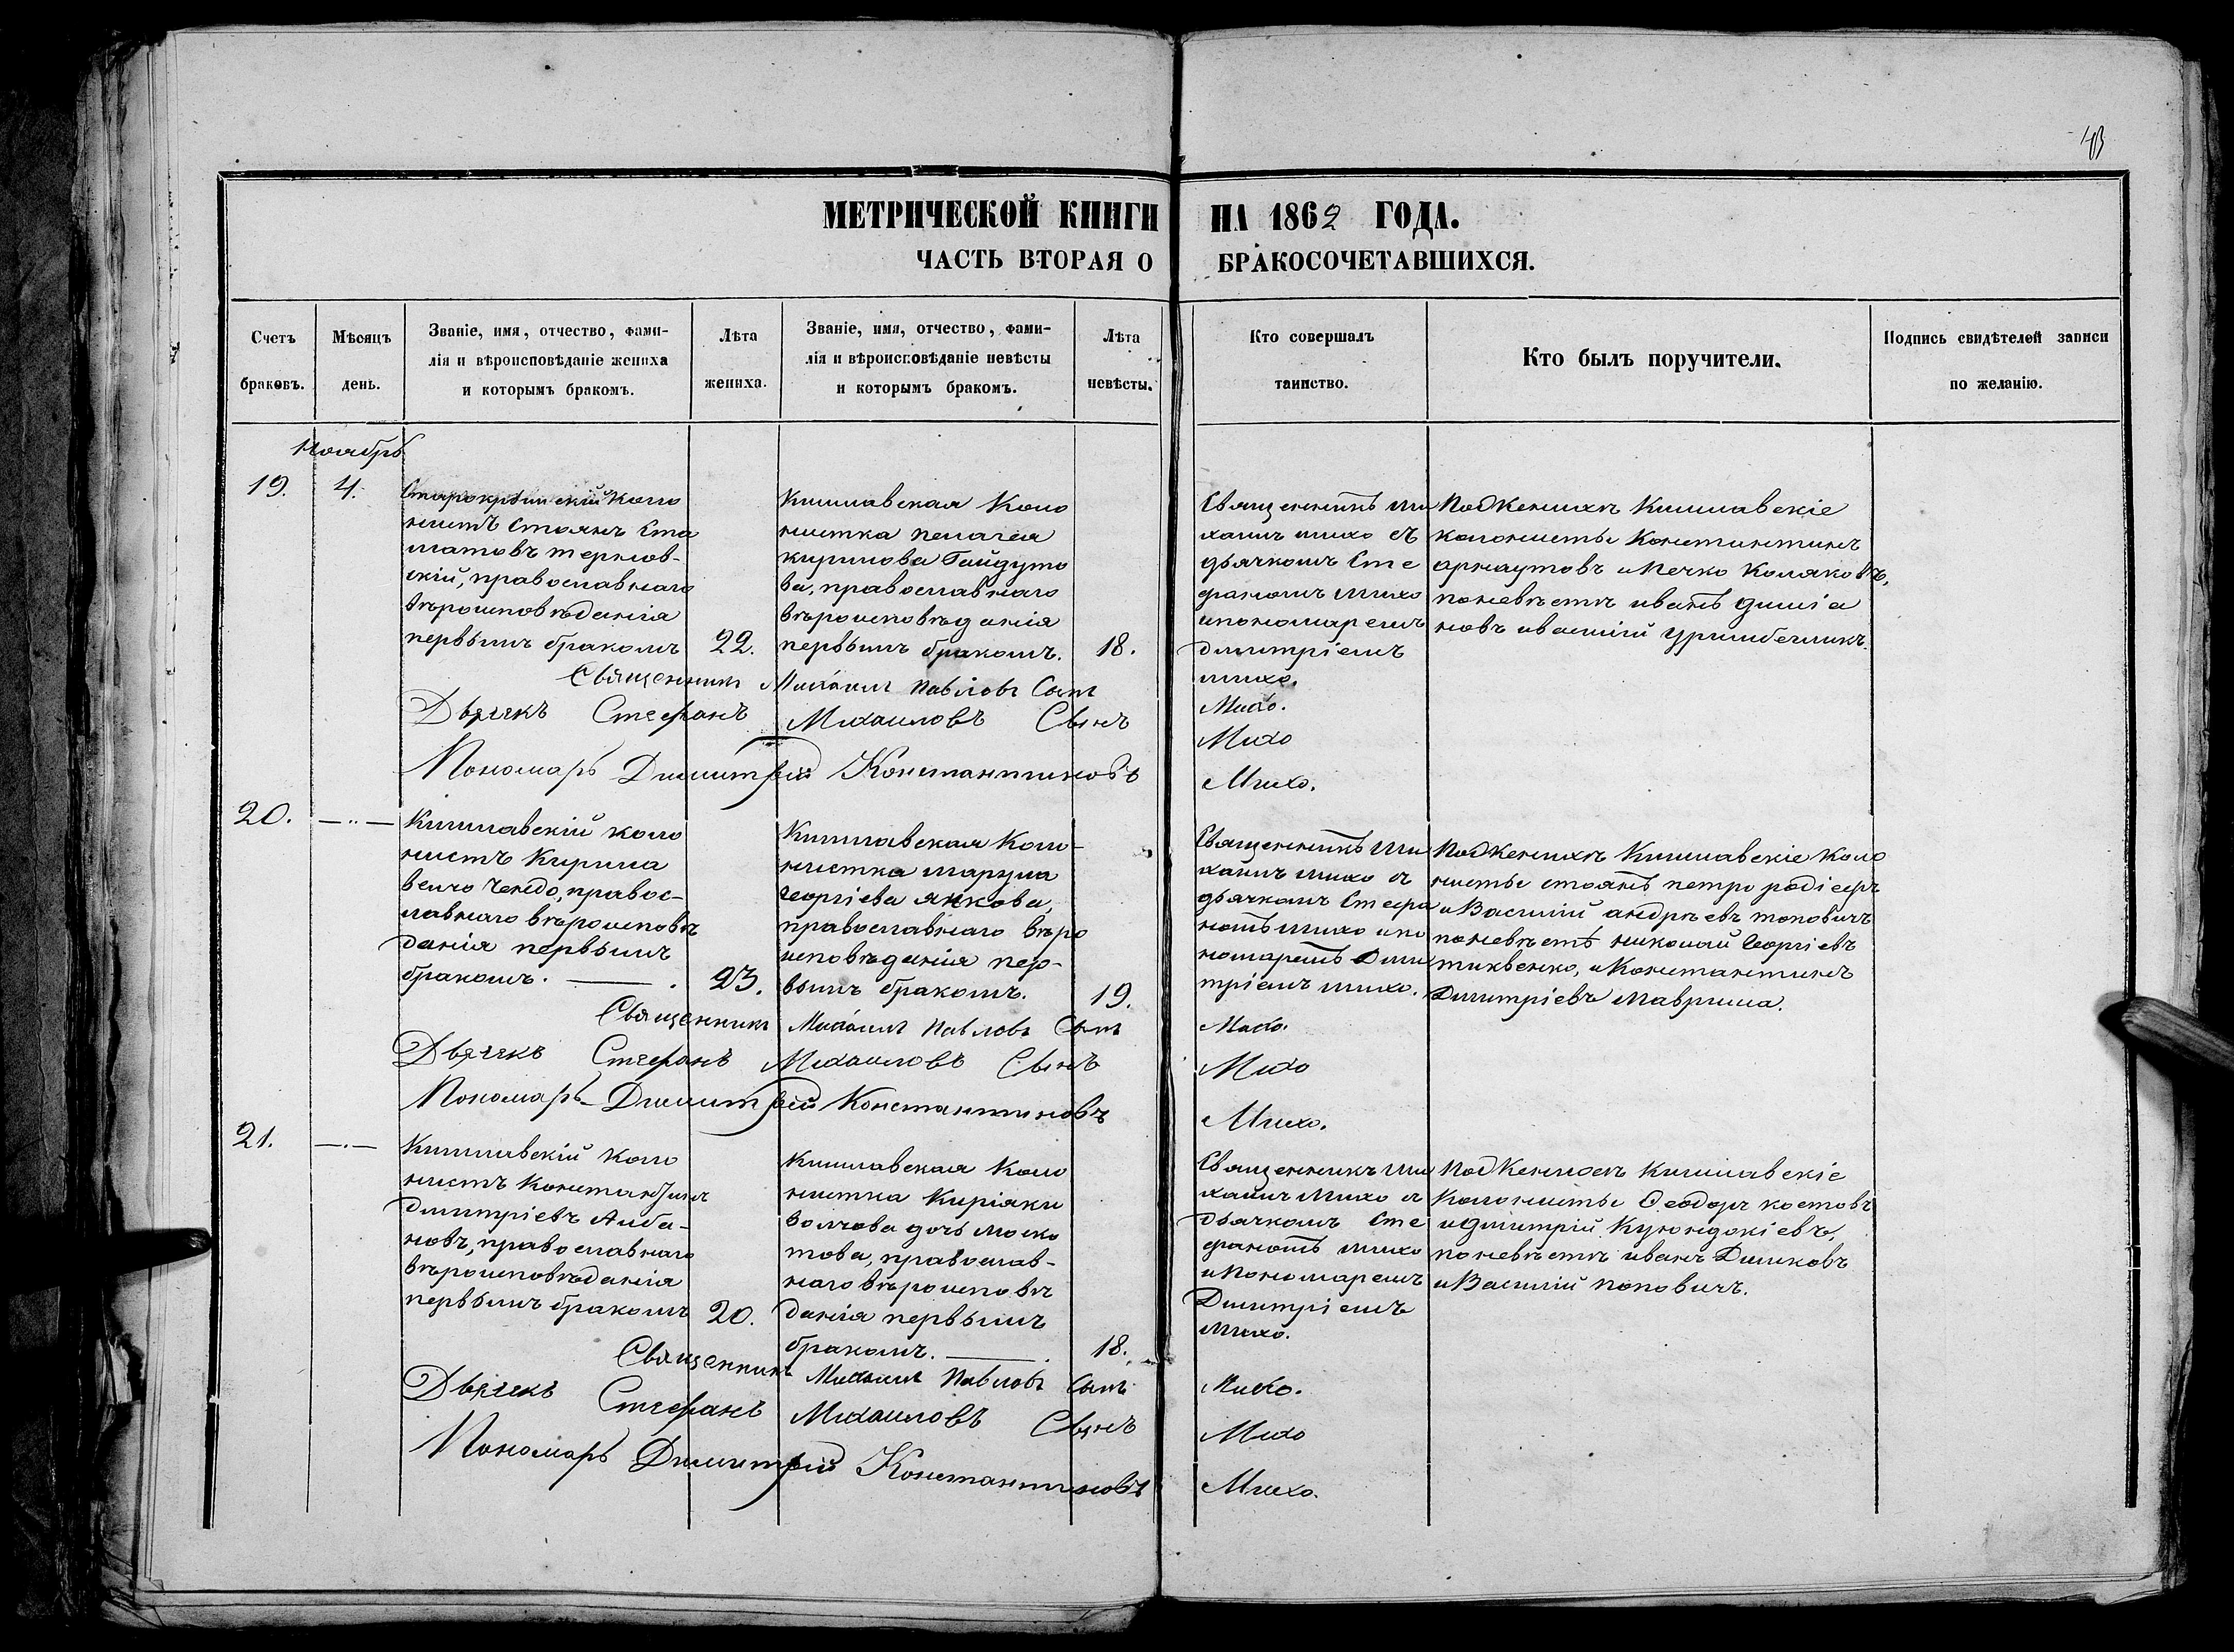 МЕТРИЧЕСКОЙ КНИГИ НА 1862 ГОДА.
ЧАСТЬ ВТОРАЯ О БРАКОСОЧЕТАВШИХСЯ.
Счетъ браковъ.
Мѣсяцъ день.
Званіе, имя, отчество, фами-
лія и вѣроисповѣданіе жениха
и которымъ бракомъ.
Лѣта
жениха.
Званіе, имя, отчество, фами-
лія и вѣроисповѣданіе невѣсты
и которымъ бракомъ.
Лѣта
невѣсты.
Кто совершалъ
таинство.
Кто былъ поручители.
Подпись свидѣтелей записи
по желанію.
Ноябрь
19.
4.
Старокрымскій Коло
нистъ Стоянъ Ста
матовъ терзіов-
скій, православнаго
вѣроисповѣданія
первымъ бракомъ
22.
Кишлавская Коло
нистка пелагея
кирилова Гайдуто
ва, православнаго
вѣроисповѣданія
первымъ бракомъ.
18.
Священникъ Ми
хаилъ михо съ
дьячкомъ Сте
фаномъ михо
ипономаремъ
димитріемъ
михо.
Под Женихъ Кишлавскіе
колонисты Константинъ
арнаутовъ и Мечко Коляковъ,
поневѣстѣ иванъ
новъ ивасилій
Священникъ Михаилъ Павловъ Сынъ Михо.
Дьячекъ Стефанъ Михаиловъ Сынъ Михо
Пономарь Димитрій Константиновъ Михо.
20.
—„—
Кишлавскій коло
нистъ Кирила
велчо Чендо, правос-
лавнаго вѣроисповѣ
данія первымъ
бракомъ.
23.
Кишлавская Коло-
нистка марула
георгіева янкова,
православнаго вѣро
исповѣданія пер-
вымъ бракомъ.
19.
Священникъ Ми
хаилъ михо съ
дьячкомъ Стефа
номъ михо ипо
номаремъ Дими
тріемъ михо.
Под Женихъ Кишлавскіе Коло
нисты стоянъ петро
и Василій андреевъ поповичъ
поневѣстѣ николай Георгіевъ
тиквенко, и Константинъ
Димитріевъ Маврила.
Священникъ Михаилъ Павловъ Сынъ Михо.
Дьячекъ Стефанъ Михаиловъ Сынъ Михо
Пономарь Димитрій Константиновъ Михо.
21.
—„—
Кишлавскій коло
нистъ Константинъ
Димитріевъ Алба-
новъ, православнаго
вѣроисповѣданія
первымъ бракомъ
20.
Кишлавская Коло
нистка Киріяки
волчова дочь моско
това, православ-
наго вѣроисповѣ
данія первымъ
бракомъ.
18.
Священникъ Ми
хаилъ Михо съ
Дьячкомъ Сте
фаномъ михо
и Пономаремъ
Димитріемъ
Михо.
Под Женихомъ Кишлавскіе
Колонисты Ѳеодоръ костовъ
иДимитрій Куюндокіевъ,
поневѣстѣ иванъ Димковъ
и Василій поповичъ.
Священникъ Михаилъ Павловъ Сынъ Михо.
Дьячекъ Стефанъ Михаиловъ Сынъ Михо
Пономарь Димитрій Константиновъ Михо.